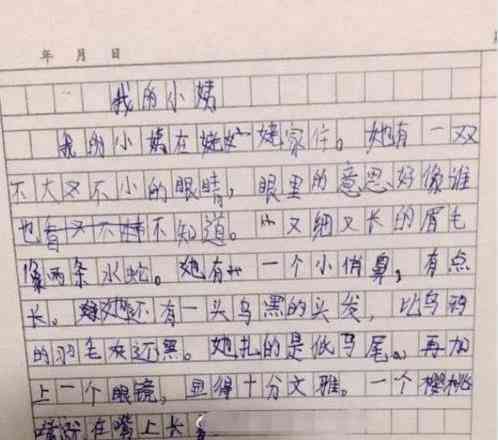 年 月 日
我的小姨
我的小姨在姥姥家住。她有一双
不大又不小的眼睛,眼里的意思好像谁
也不知道。又细又长的眉毛
像两条水蛇。她有一个小俏鼻,有点
长。她还有一头乌黑的头发,比乌鸦
的羽毛灰还黑。她扎的是低马尾。再加
上一个眼镜,显得十分文雅。一个樱桃
嘴在嘴上长